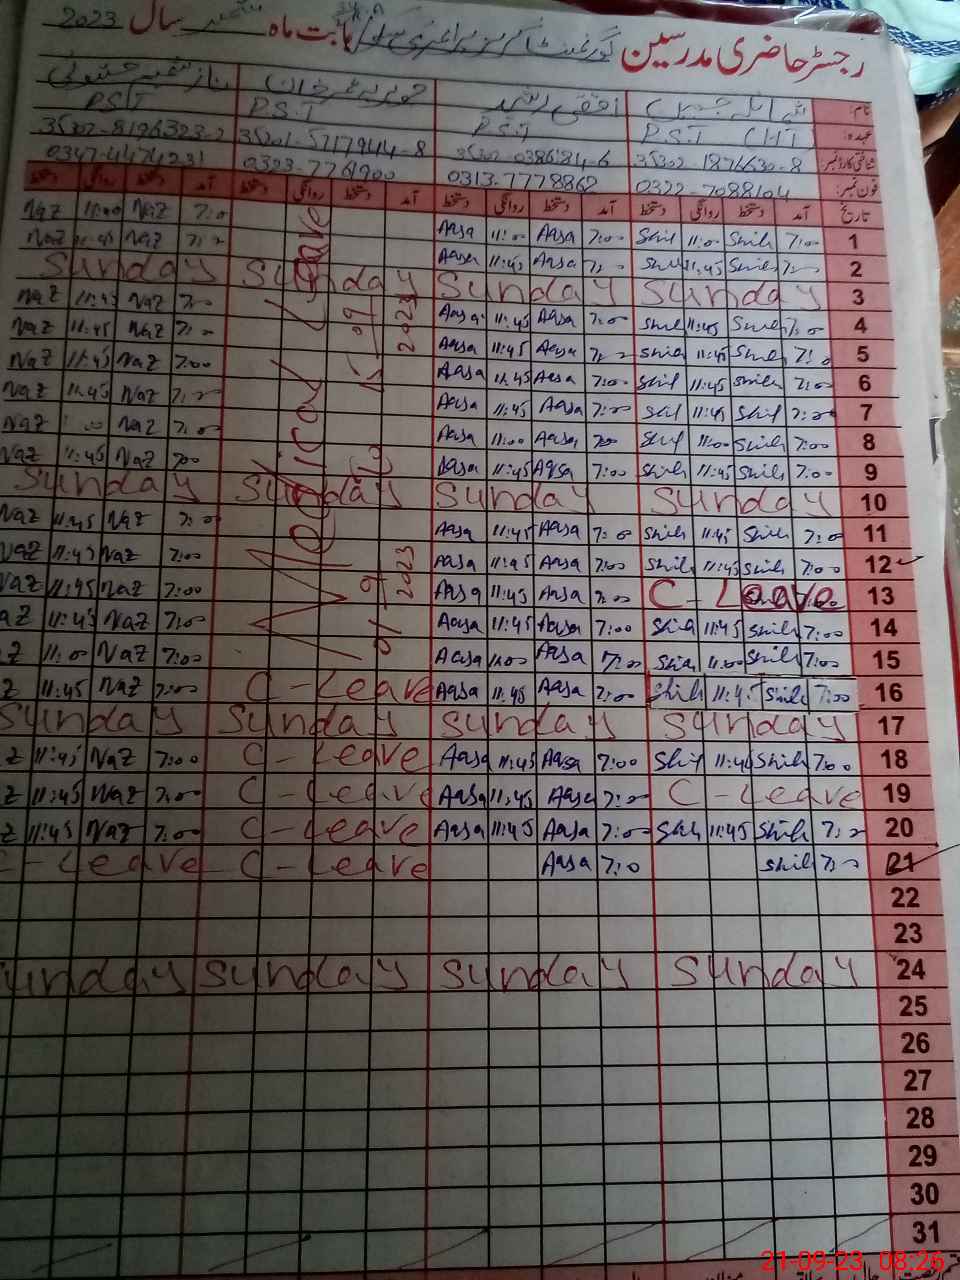 رجسٹر حاضری مدرسین گورنمنٹ بابت ماہ ستمبر سال 2023
نام:
عہدہ: P.S.T CHT P.S.T P.S.T P.S.T
شناختی کارڈ نمبر: 35302-1876630-8 35302-0386184-6 35201-5717944-8 35302-8196323-2
فون نمبر: 0322-7088104 0313-7778862 0323-7761900 0347-4474231
تاریخ آمد دستخط روانگی دستخط آمد دستخط روانگی دستخط آمد دستخط روانگی دستخط آمد دستخط روانگی دستخط
1 7:00 Shih 11:00 Shih 7:00 Aasa 11:00 Aasa 7:00 Naz 11:00 Naz
2 7:00 Shih 11:45 Shih 7:00 Aasa 11:45 Aasa 7:00 Naz 11:45 Naz
3 Sunday Sunday Sunday Sunday
4 7:00 Shih 11:45 Shih 7:00 Aasa 11:45 Aasa 7:00 Naz 11:45 Naz
5 7:00 Shih 11:45 Shih 7:00 Aasa 11:45 Aasa 7:00 Naz 11:45 Naz
6 7:00 Shih 11:45 Shih 7:00 Aasa 11:45 Aasa 7:00 Naz 11:45 Naz
7 7:00 Shih 11:45 Shih 7:00 Aasa 11:45 Aasa 7:00 Naz 11:45 Naz
8 7:00 Shih 11:00 Shih 7:00 Aasa 11:00 Aasa 7:00 Naz Naz
9 7:00 Shih 11:45 Shih 7:00 Aasa 11:45 Aasa 7:00 Naz 11:45 Naz
10 Sunday Sunday Sunday Sunday
11 7:00 Shih 11:45 Shih 7:00 Aasa 11:45 Aasa 7:00 Naz 11:45 Naz
12 7:00 Shih 11:45 Shih 7:00 Aasa 11:45 Aasa 7:00 Naz 11:45 Naz
13 C-Leave 7:00 Aasa 11:45 Aasa 7:00 Naz 11:45 Naz
14 7:00 Shih 11:45 Shih 7:00 Aasa 11:45 Aasa 7:00 Naz 11:45 Naz
15 7:00 Shih 11:00 Shih 7:00 Aasa 11:00 Aasa 7:00 Naz 11:00
Medical Leave 01-9-2023 تا 15-09-2023
16 7:00 Shih 11:45 Shih 7:00 Aasa 11:45 Aasa C-Leave 7:00 Naz 11:45
17 Sunday Sunday Sunday Sunday
18 7:00 Shih 11:45 Shih 7:00 Aasa 11:45 Aasa C-Leave 7:00 Naz 11:45
19 C-Leave 7:00 Aasa 11:45 Aasa C-Leave 7:00 Naz 11:45
20 7:00 Shih 11:45 Shih 7:00 Aasa 11:45 Aasa C-Leave 7:00 Naz 11:45
21 7:00 Shih 7:00 Aasa C-Leave C-Leave
22
23
24 Sunday Sunday Sunday Sunday
25
26
27
28
29
30
31
21-09-23 08:26